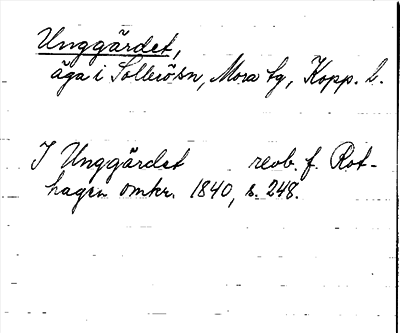 Unggärdet,
äga i Sollerö sn, Mora tg, Kopp. l.
I Unggärdet reob. f. Rot-
hagen omkr. 1840, s. 248.